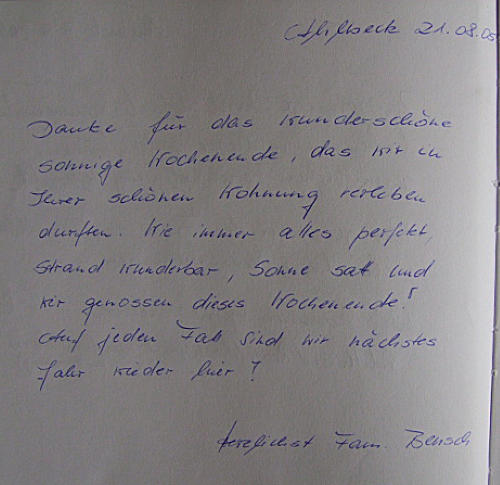 Ahlbeck 21.08.05
Danke für das wunderschöne
sonnige Wochenende, das wir in
Ihrer schönen Wohnung verleben
durften. Wie immer alles perfekt,
Strand wunderbar, Sonne satt und
wir genossen dieses Wochenende!
Auf jeden Fall sind wir nächstes
Jahr wieder hier!
Herzlichst Fam. Bensch